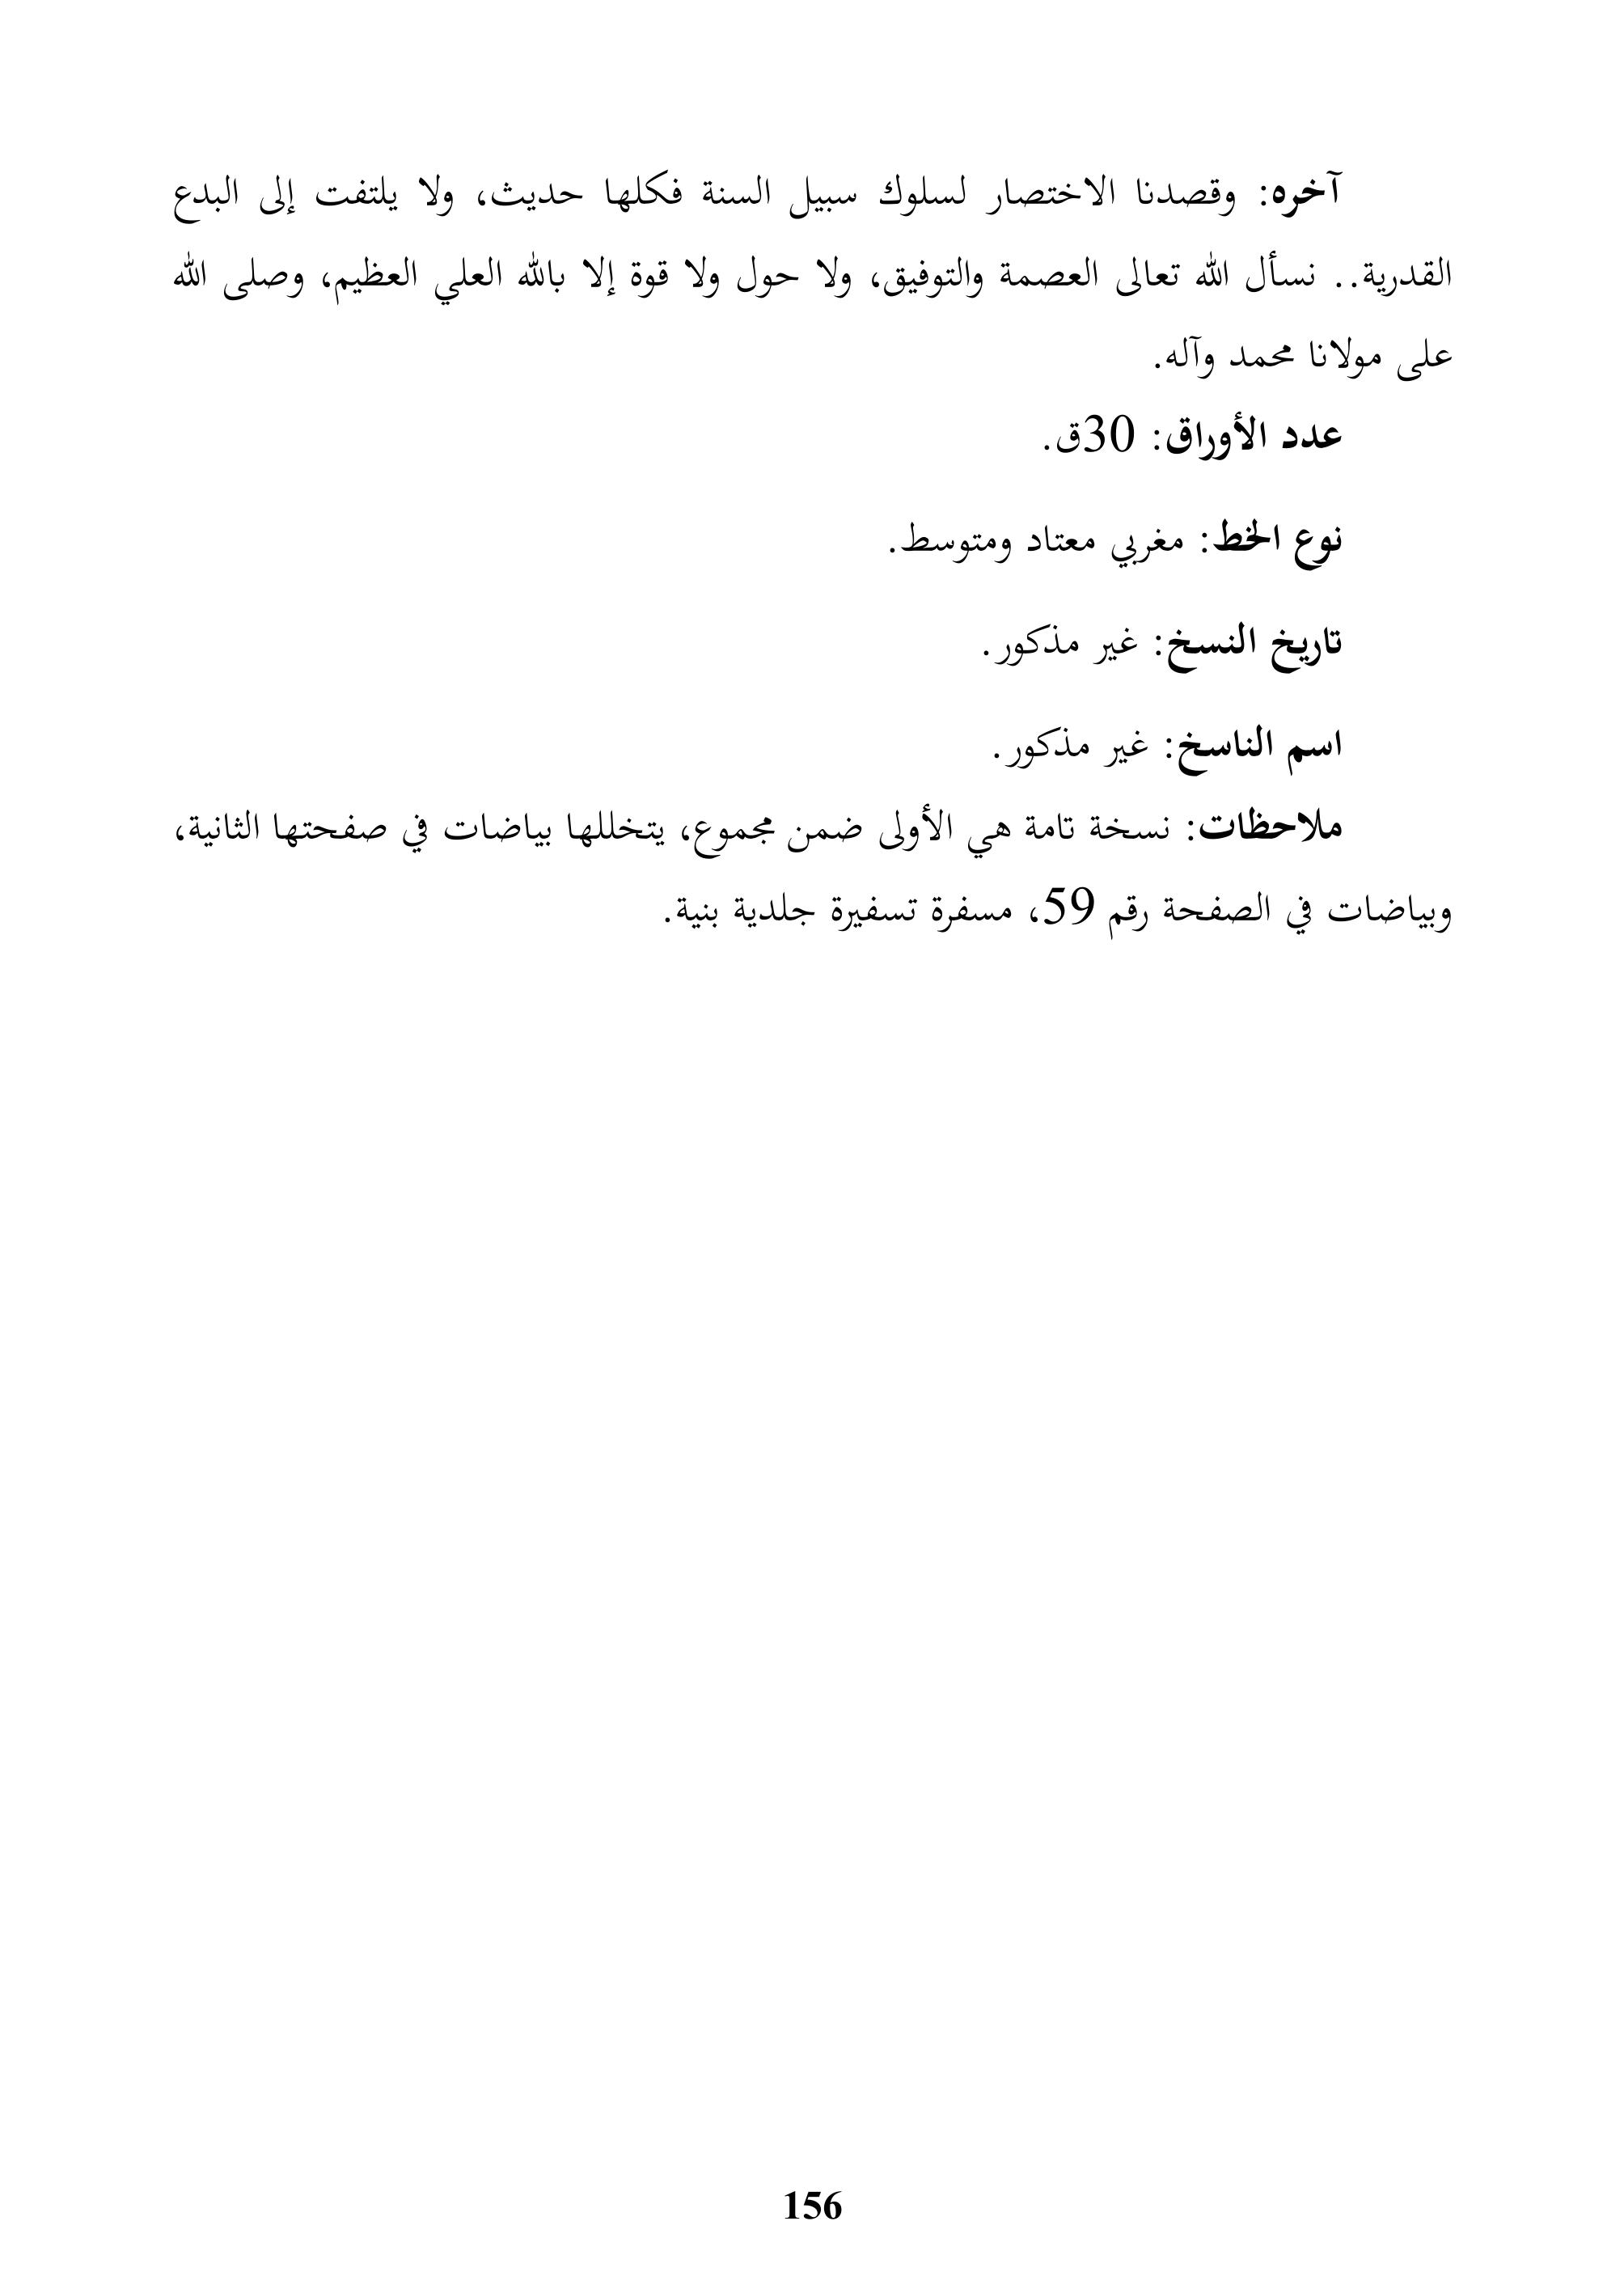 آخره: وقصدنا الاختصار لسلوك سبيل السنة فكلها حديث، ولا يلتفت إلى البدع
القدرية.. نسأل الله تعالى العصمة والتوفيق، ولا حول ولا قوة إلا بالله العلي العظيم، وصلى الله
على مولانا محمد وآله.
عدد الأوراق: 30ق.
نوع الخط: مغربي معتاد ومتوسط.
تاريخ النسخ: غير مذكور.
اسم الناسخ: غير مذكور.
ملاحظات: نسخة تامة هي الأولى ضمن مجموع، يتخللها بياضات في صفحتها الثانية،
وبياضات في الصفحة رقم 59، مسفرة تسفيرة جلدية بنية.
156